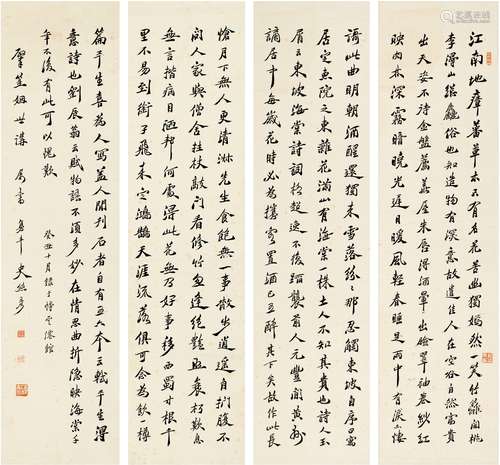 江南地瘴蕃草木只有名花苦幽獨嫣然一笑竹籬間桃
李漫山總麤俗也知造物有深意故遣佳人在空谷自然富貴
出天姿不待金盤薦華屋朱唇得酒暈生臉翠袖卷紗紅
映肉林深霧暗曉光遲日暖風輕春睡足雨中有淚亦悽
愴月下無人更清淑先生食飽無一事散步逍遙自捫腹不
問人家與僧舍拄杖敲門看修竹忽逢絕艷照衰朽歎息
無言揩病目陋邦何處得此花無乃好事移西蜀寸根千
里不易到銜子飛來定鴻鵠天涯流落俱可念為飲一樽
謌此曲明朝酒醒還獨來雪落紛紛那忍觸東坡自序曰寓
居定惠院之東雜花滿山有海棠一株土人不知其貴也詩人玉
屑云東坡海棠詩詞格超逸不復蹈襲前人元豐間黃州
謫居中每歲花時必為攜客置酒已五醉其下矣故作此長
篇平生喜為人寫蓋人間刊石者自有五六本云軾平生得
意詩也劉辰翁云賦物語不須多妙在情思曲折隱映海棠千
年不復有此可以愧歎
癸丑十月錄于
姻世講屬書